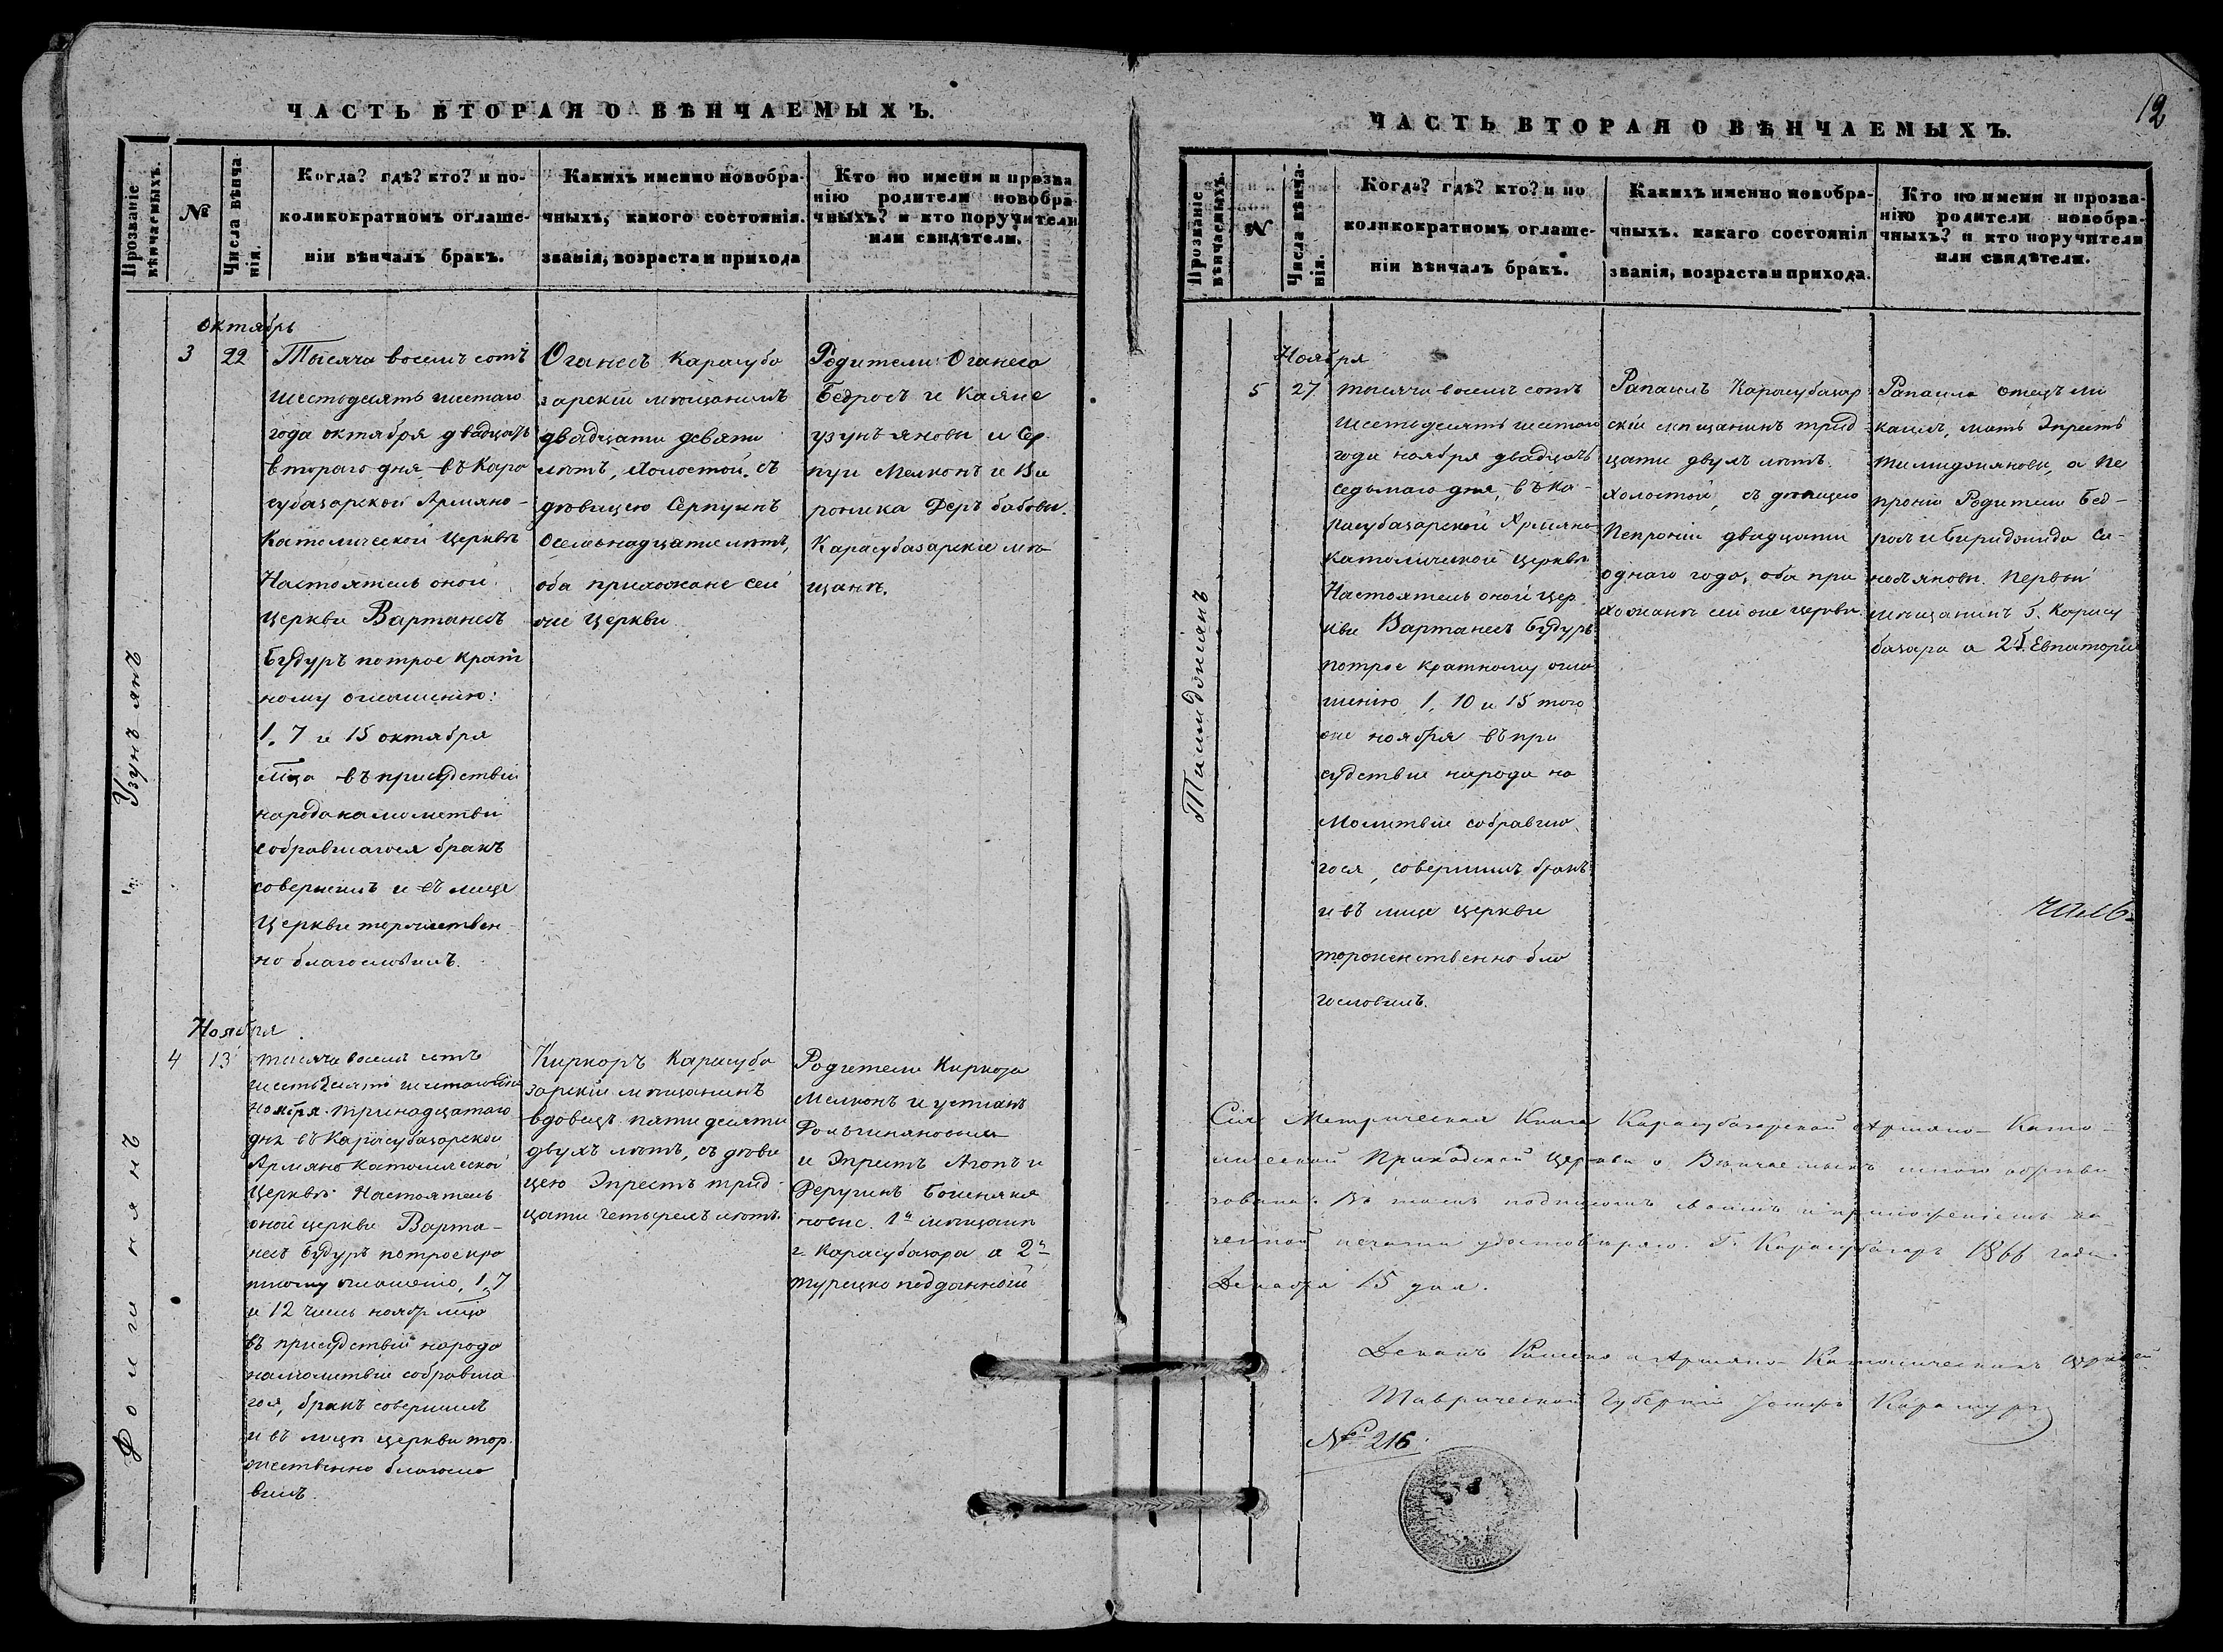 ЧАСТЬ ВТОРАЯ О ВѢНЧАЕМЫХЪ.
Прозваніе вѣнчаемыхъ.
№
Числа вѣнча-
нія.
Когда? гдѣ? кто? и по-
коликократномъ оглаше-
ніи вѣнчалъ бракъ.
Какихъ именно новобра-
чныхъ, какого состоянія.
званія, возраста и прихода
Кто по имени и прозва
нію родители новобра-
чныхъ? и кто поручители
или свидѣтели.
Узунъ янъ
октябрь
3
22
Тысяча восемъ сотъ
шестодесять шестаго
года октября двадцать
втораго дня въ Кара
субазарской Армяно-
Католической Церквѣ
Настоятель оной
Церкви Вартанесъ
Будуръ по трое крат
ному оглашенію:
1, 7 и 15 октября
мѣца въ присудствіи
народа на молитви
собравшагося бракъ
совершилъ и въ лице
Церкви торжествен
но благословилъ.
Оганесъ Карасуба
зарскій мѣщанинъ
двадцати девяти
лѣтъ, холостой, съ
дѣвицею Серпуинъ
осемьнадцати лѣтъ,
оба прихожане сей
же Церкви
Родители Оганеса
Бедросъ и Каяне
узунъ яновы и Сер
пуи Мелконъ и Ве
роника Деръ бабовы.
Карасубазарскіе мѣ
щане.
Ноября
4
13
тысяча восемъ сотъ
ноября тринадцатаго
дня въ Карасубазарской
Армяно Католической
Церквѣ Настоятель
оной церкви Варта-
несъ Будуръ по трое кра
тному оглашенію, 1, 7
и 12 числъ ноябр мѣца
въ присудствіи народа
на молитви собравша
гося, бракъ совершилъ
и въ лицѣ церкви тор
жественно благосло
вилъ.
Киркоръ Карасуба
зарскій мѣщанинъ
вдовецъ пяти десяти
двухъ лѣтъ, съ дѣви
цею Эпрестъ трид
цати четырехъ лѣтъ.
Родители Киркора
Мелконъ и
и Эпрестъ Агопъ и
1й мѣщанъ
г. Карасубазара а 2й
турецко подданной
ЧАСТЬ ВТОРАЯ О ВѢНЧАЕМЫХЪ.
12
Прозваніе вѣнчаемыхъ.
№
Числа вѣнча-
нія.
Когда? гдѣ? кто? и по
коликократномъ оглаше-
ніи вѣнчалъ бракъ.
Какихъ именно новобра-
чныхъ. какаго состоянія
званія, возраста и прихода.
Кто по имени и прозва-
нію родители новобра-
чныхъ? и кто поручители
или свидѣтели.
Ноября
5
27
тысяча восемъ сотъ
шестодесять шестаго
года ноября двадцать
седьмаго дня, въ Ка-
расубазарской Армяно
Католической церквѣ
Настоятель оной цер
кви Вартанесъ Будуръ
по трое кратному огла
шенію 1, 10 и 15 того
же ноября въ при
судствіи народа на
Молитвіи собравша
гося, совершилъ бракъ
и въ лице церкви
торжественно бла
гословилъ.
Рапаилъ Карасубазар
скій мѣщанинъ трид
цати двухъ лѣтъ
холостой, съ дѣвицею
Пепроніи двадцати
однаго года, оба при
хожане сей же церкви
Рапаила отецъ Ми
каилъ, мать Эпрестъ
а Пе
проніи Родители Бед-
росъ и
Первый
мѣщанинъ г. Карасу
базара а 2й г. Евпаторіи
Сія Метрическая Книга Карасубазарской Армяно-Като-
лической Приходской Церкви о Вѣнчаемыхъ мною
Въ томъ подписомъ своимъ и приложеніемъ ка-
зенной печати удостовѣряю. Г. Карасубазаръ 1866 года
Декабря 15 дня.
Деканъ Римско и Армяно-Католическихъ Церквей
Таврической Губерніи Іосифъ
№ 216